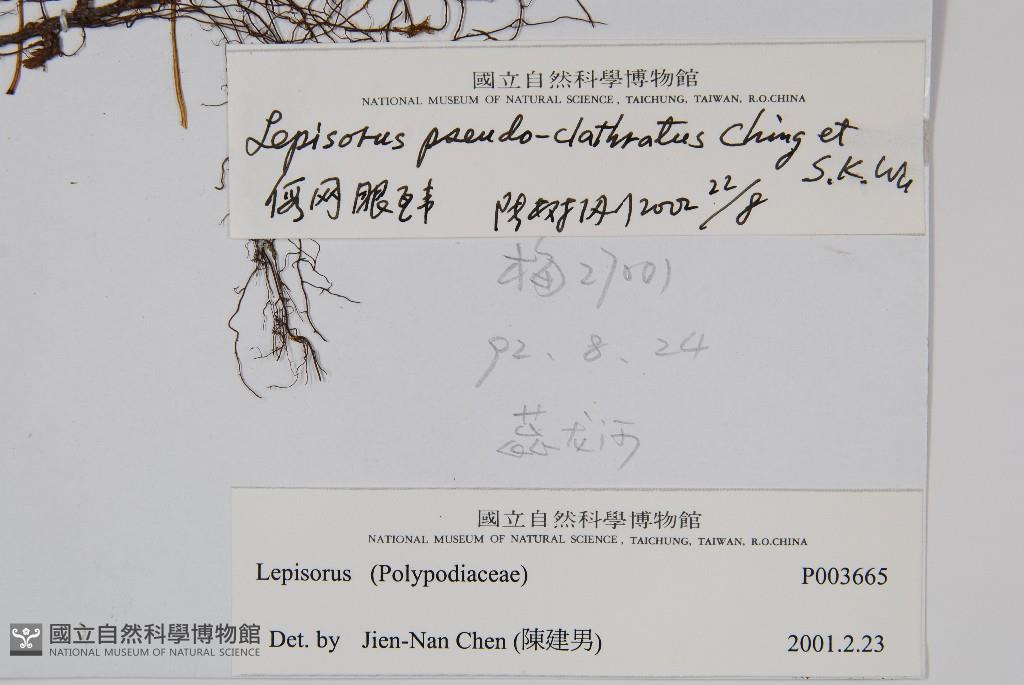 國立自然科學博物館
NATIONAL MUSEUM OF NATURAL SCIENCE, TAICHUNG, TAIWAN, R.O.CHINA
Lepisorus pseudo-clathratus Ching et
S.K. Wu
网眼瓦韦 2002 22/8
梅27001
92.8.24
龙河
國立自然科學博物館
NATIONAL MUSEUM OF NATURAL SCIENCE, TAICHUNG, TAIWAN, R.O.CHINA
Lepisorus (Polypodiaceae) P003665
Det. by Jien-Nan Chen (陳建男) 2001.2.23
國立自然科學博物館
NATIONAL MUSEUM OF NATURAL SCIENCE